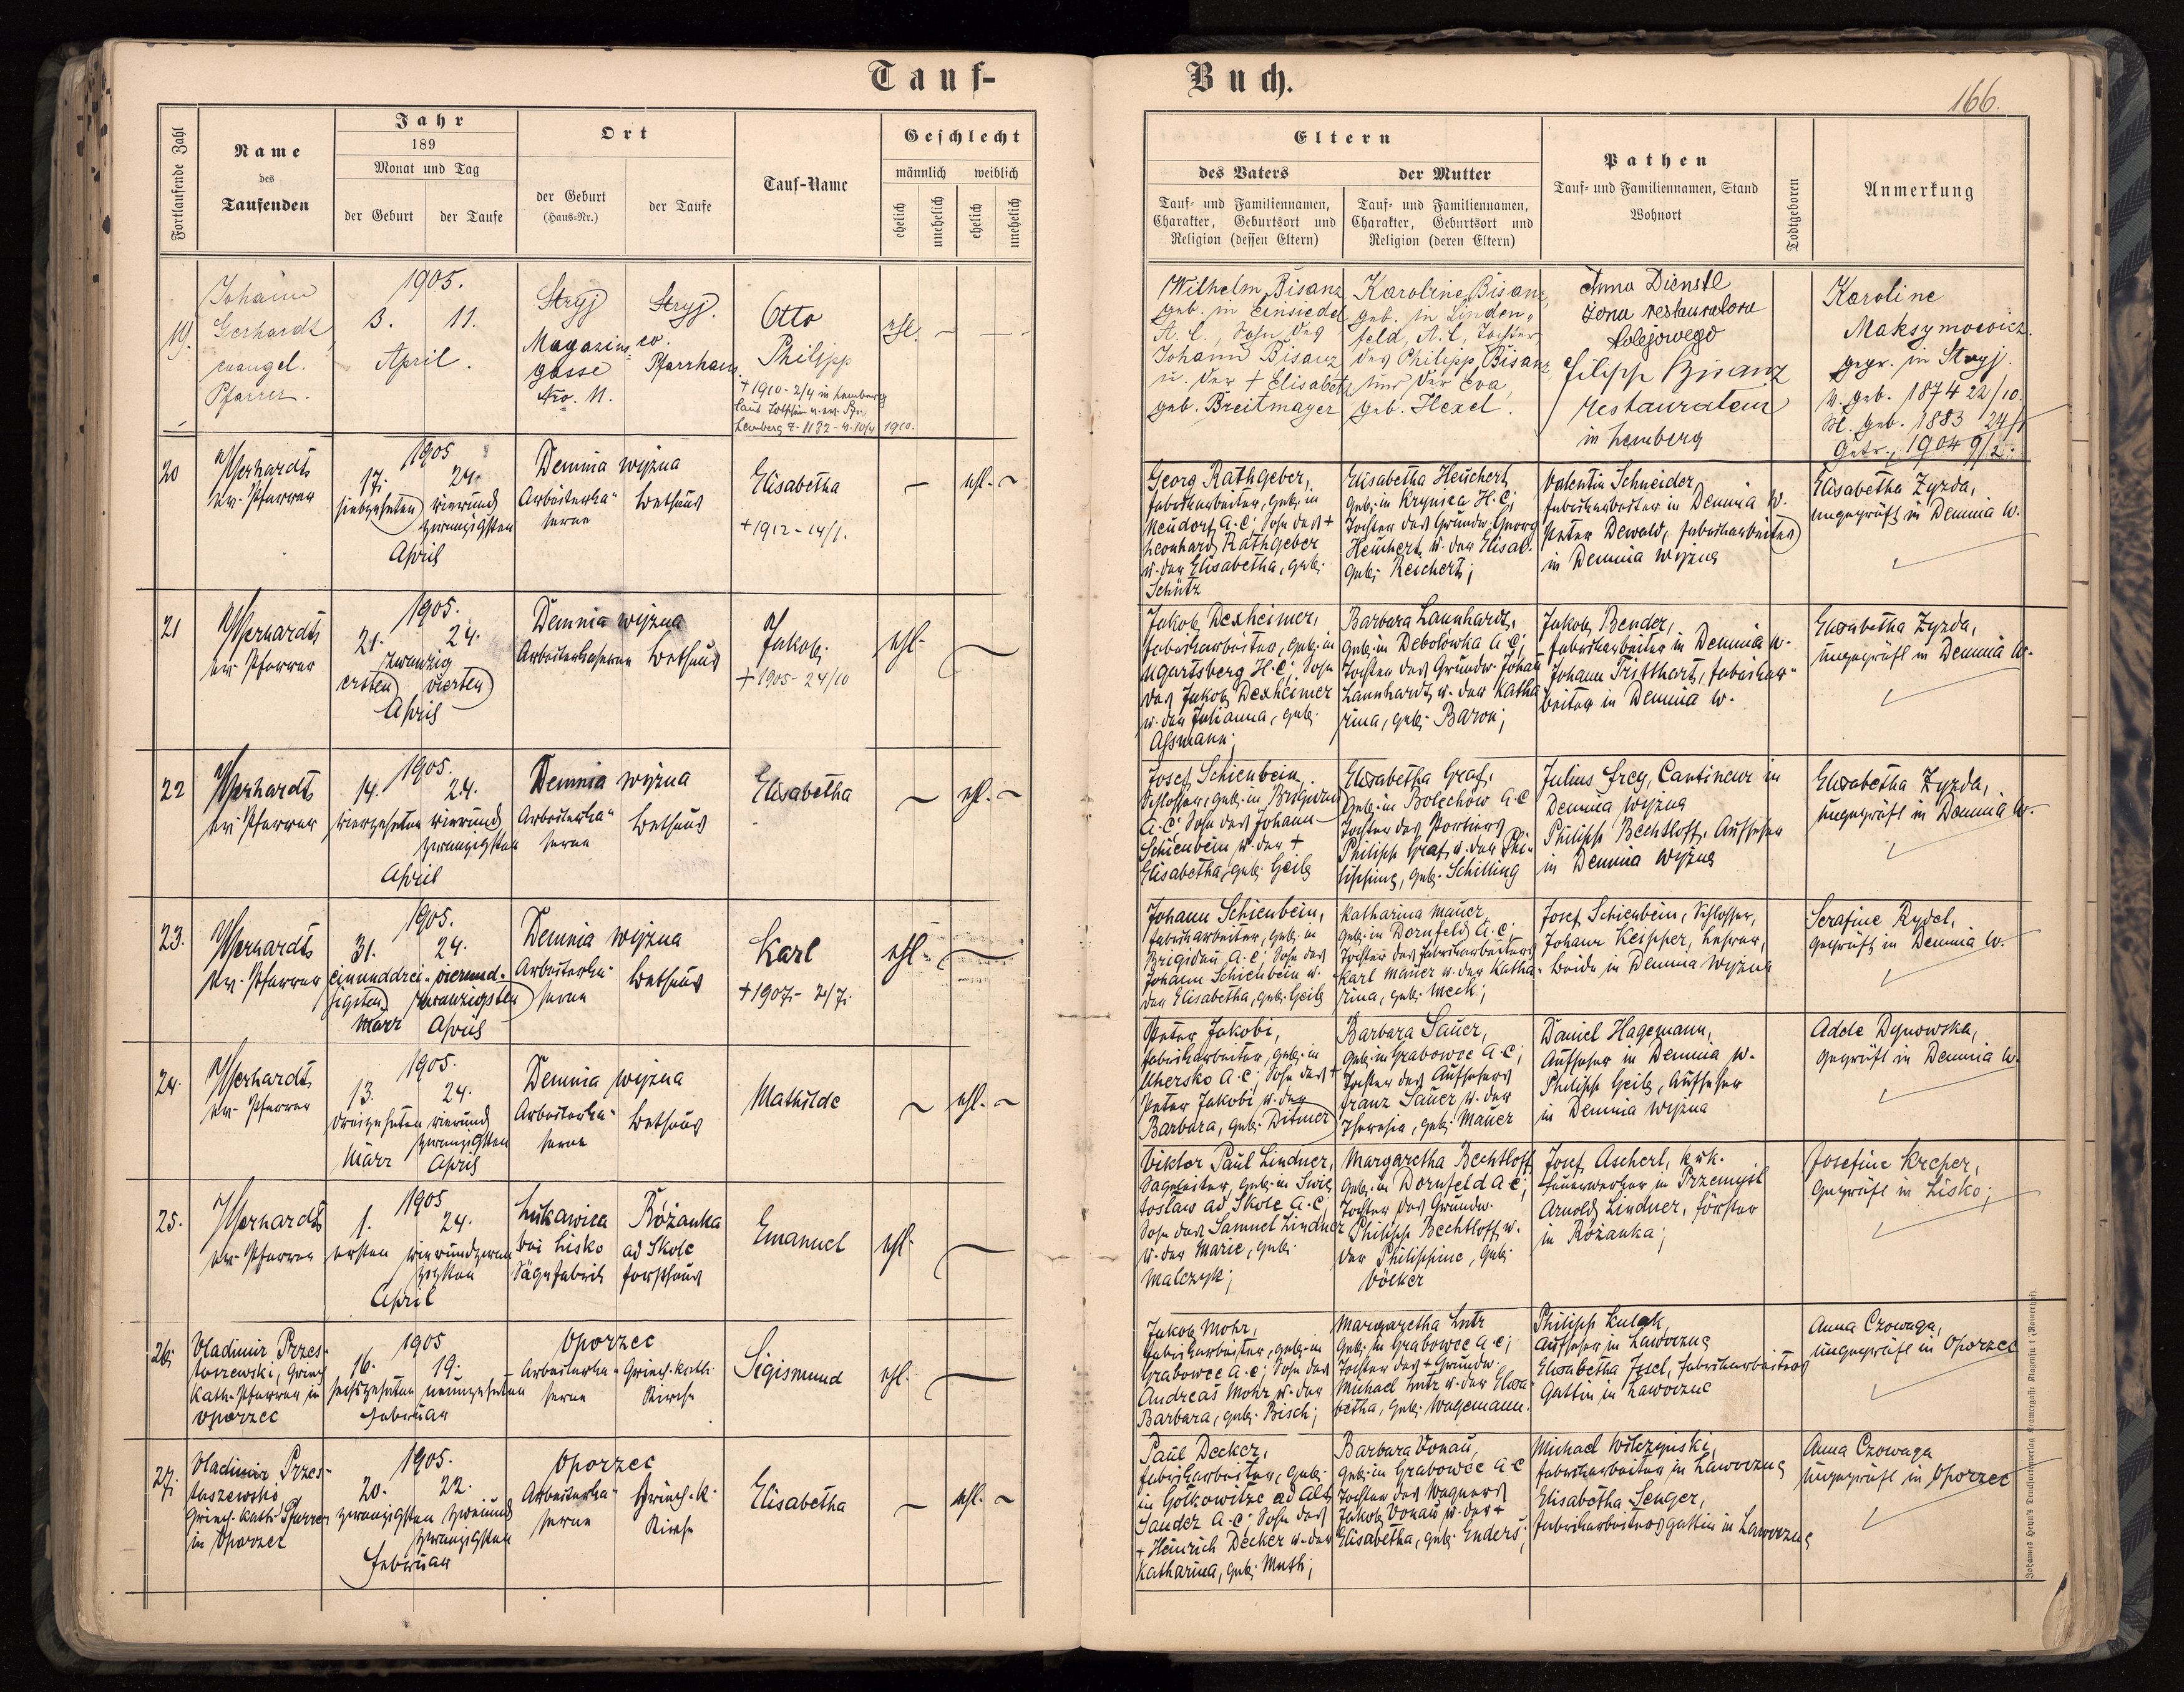 Tauf-
Buch.
166.
Fortlaufende Zahl
Name
des
Taufenden
Jahr
189
Monat und Tag
der Geburt
der Taufe
Ort
der Geburt
(Haus-Nr.)
der Taufe
Tauf-Name
Geschlecht
männlich
weiblich
ehelich
unehelich
ehelich
unehelich
Eltern
des Vaters
Tauf- und Familiennamen,
Charakter, Geburtsort und
Religion (dessen Eltern)
der Mutter
Tauf- und Familiennamen,
Charakter, Geburtsort und
Religion (deren Eltern)
Pathen
Tauf- und Familiennamen, Stand
Wohnort
Todtgeboren
Anmerkung
19.
Johann
Gerhardt
evangel.
Pfarrer.
1905.
3. 11.
April.
Stryj
Magazins
gasse
Nro. 11.
Stryj.
ev.
Pfarrhaus.
Otto
Philipp
+ 1910 - 2/4 in Lemberg
Lemberg Z. 1132 - v. 10/4 1910.
ehl. -
Wilhelm Bisanz
geb. in Einsiedel
A. C., Sohn des
Johann Bisanz
u. der + Elisabeth
geb. Breitmayer
Karoline Bisanz
geb. in Linden-
feld, A. C., Tochter
des Philipp Bisanz
und der Eva,
geb. Hexel.
Anna Dienstl
żona restauratora
kolejowego
Filipp Bisanz
restaurateur
in Lemberg
Karoline
Maksymowicz.
gepr. in Stryj.
V. geb. 1874 22/10.
M. geb. 1883 24/1
Getr. 1904 9/2.
20
JGerhardt,
ev. Pfarrer
1905
17. 24.
siebzehnten vierund
zwanzigsten
April
Demnia wyżna
Arbeiterka-
serne
Bethaus
Elisabetha
+ 1912 - 14/1.
- ehl. -
Georg Rathgeber,
Fabriksarbeiter, geb. in
Neudorf A. C; Sohn des +
Leonhard Rathgeber
u. der Elisabetha, geb.
Schütz
Elisabetha Heuchert,
geb. in Krynica H. C;
Tochter des Grundw. Georg
Heuchert u. der Elisab.
geb. Reichert;
Valentin Schneider,
Fabriksarbeiter in Demnia w.
Peter Dewald, Fabriksarbeiter
in Demnia wyżna
Elisabetha Zyzda,
ungeprüft in Demnia w.
21
JGerhardt,
ev. Pfarrer
1905.
21. 24.
zwanzig
ersten vierten
April
Demnia wyżna
Arbeiterkaserne Bethaus
Jakob.
+ 1905 - 24/10
ehl. -
Jakob Dexheimer,
Fabriksarbeiter, geb. in
Ugartsberg H. C; Sohn
des Jakob Dexheimer
u. der Julianna, geb.
Assmann;
Barbara Launhardt,
geb. in Debolowka A C;
Tochter des Grundw. Johan
Launhardt u. der Katha
rina, geb. Baron;
Jakob Bender,
Fabriksarbeiter in Demnia w.
Johann Tritthart, Fabriksar-
beiter in Demnia w.
Elisabetha Zyzda,
ungeprüft in Demnia w.
22
JGerhardt
ev. Pfarrer
1905.
14. 24.
vierzehnten vierund
zwanzigsten
April
Demnia wyżna
Arbeiterka-
serne
Bethaus
Elisabetha
- ehl. -
Josef Schienbein,
Schlosser, geb. in Brigidau
A. C; Sohn des Johann
Schienbein u. der +
Elisabetha, geb. Geib
Elisabetha Graf,
geb. in Bolechow A. C
Tochter des Portiers
Philipp Graf u. der Phi-
lippine, geb. Schilling
Julius Frey, Cantineur in
Demnia wyżna
Philipp Bechtloff, Aufseher
in Demnia wyżna
Elisabetha Zyzda,
ungeprüft in Demnia w.
23.
JGerhardt
ev. Pfarrer
1905.
31. 24.
einunddrei- vierund-
sigsten zwanzigsten
März April
Demnia wyżna
Arbeiterka-
serne
Bethaus
Karl
+ 1907 - 2/7.
ehl. -
Johann Schienbein,
Fabriksarbeiter, geb. in
Brigidau, A. C; Sohn des
Johann Schienbein u.
der Elisabetha, geb. Geib
Katharina Mauer,
geb. in Dornfeld A. C;
Tochter des Fabriksarbeiters
Karl Mauer u. der Katha-
rina, geb. Meck;
Josef Schienbein, Schlosser,
Johann Keipper, Lehrer,
beide in Demnia wyżna
Serafine Rydel,
geprüft in Demnia w.
24.
JGerhardt,
ev. Pfarrer
1905.
13. 24.
dreizehnten vierund
zwanzigsten
März April
Demnia wyżna
Arbeiterka-
serne
Bethaus
Mathilde
- ehl. -
Peter Jakobi,
Fabriksarbeiter, geb. in
Uhersko A. C; Sohn des +
Peter Jakobi u. der
Barbara, geb. Ditmer
Barbara Sauer,
geb. in Grabowce A. C;
Tochter des Aufsehers
Franz Sauer u. der
Theresia, geb. Mauer
Daniel Hagemann,
Aufseher in Demnia w.
Philipp Geib, Aufseher
in Demnia wyżna
Adele Dynowska,
geprüft in Demnia w.
25.
JGerhardt
ev. Pfarrer
1905
1. 24.
ersten vierundzwan
zigsten
April
Lukawica
bei Lisko
Sägefabrik
Różanka
ad Skole
Forsthaus
Emanuel
ehl. -
Viktor Paul Lindner,
Sageleiter, geb. in Swię
toslaw ad Skole A. C;
Sohn des Samuel Lindner
u. der Marie, geb.
Malczyk;
Margaretha Bechtloff
geb. in Dornfeld A C;
Tochter des Grundw.
Philipp Bechtloff u.
der Philippine, geb.
Völker
Josef Ascherl, k.u.k.
Feuerwerker in Przemyśl
Arnold Lindner, Förster
in Różanka;
Josefine Kreper,
geprüft in Lisko;
26.
Vladimir Przes-
taszewski, Griech
kath. Pfarrer in
Oporzec
1905
16. 19.
sechszehnten neunzehnten
Februar
Oporzec
Arbeiterka-
serne
Griech. kath.
Kirche
Sigismund
ehl. -
Jakob Mohr,
Fabriksarbeiter, geb. in
Grabowce A. C; Sohn des
Andreas Mohr u. der
Barbara, geb. Bisch;
Margaretha Lutz
geb. in Grabowce A C;
Tochter des + Grundw.
Michael Lutz u. der Elisa
betha, geb. Wagemann.
Philipp Kulak,
Aufseher in Lawoczne
Elisabetha Issel, Fabriksarbeiters
Gattin in Lawoczne
Anna Czowaga,
ungeprüft in Oporzec
27.
Vladimir Przes-
taszewski
Griech. kath. Pfarrer
in Oporzec
1905.
20. 22.
zwanzigsten zweiund
zwanzigsten
Februar
Oporzec
Arbeiterka-
serne
Griech. k.
Kirche
Elisabetha
- ehl. -
Paul Decker,
Fabriksarbeiter, geb.
in Golkowitze ad Alt
Sandez A. C; Sohn des
+ Heinrich Decker u. der
Katharina, geb. Muth;
Barbara Vonau,
geb. in Grabowce A C
Tochter des Wagners
Jakob Vonau u. der +
Elisabetha, geb. Enders;
Michael Wilczynski,
Fabriksarbeiter in Lawoczne
Elisabetha Senger,
Fabriksarbeitersgattin in Lawoczne
Anna Czowaga
ungeprüft in Oporzec